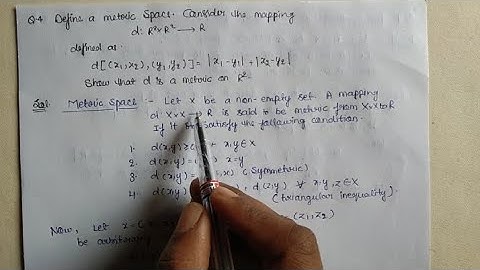 Q.4 Define a metric space. Consider the mapping
d: R²×R² → R
defined as
d[(x₁,x₂), (y₁,y₂)] = |x₁-y₁| + |x₂-y₂|
Show that d is a metric on R².
Sol: Metric Space :- Let X be a non-empty set. A mapping
d: X×X → R is said to be metric from X×X to R
If it satisfy the following condition.
1. d(x,y) ≥ x,y ∈ X
2. d(x,y) = x=y
3. d(x,y) = x) (Symmetric)
4. d(x,y) d(z,y) ∀ x,y,z ∈ X
(triangular inequality).
Now, Let x = (z₁,z₂)
be arbitrary